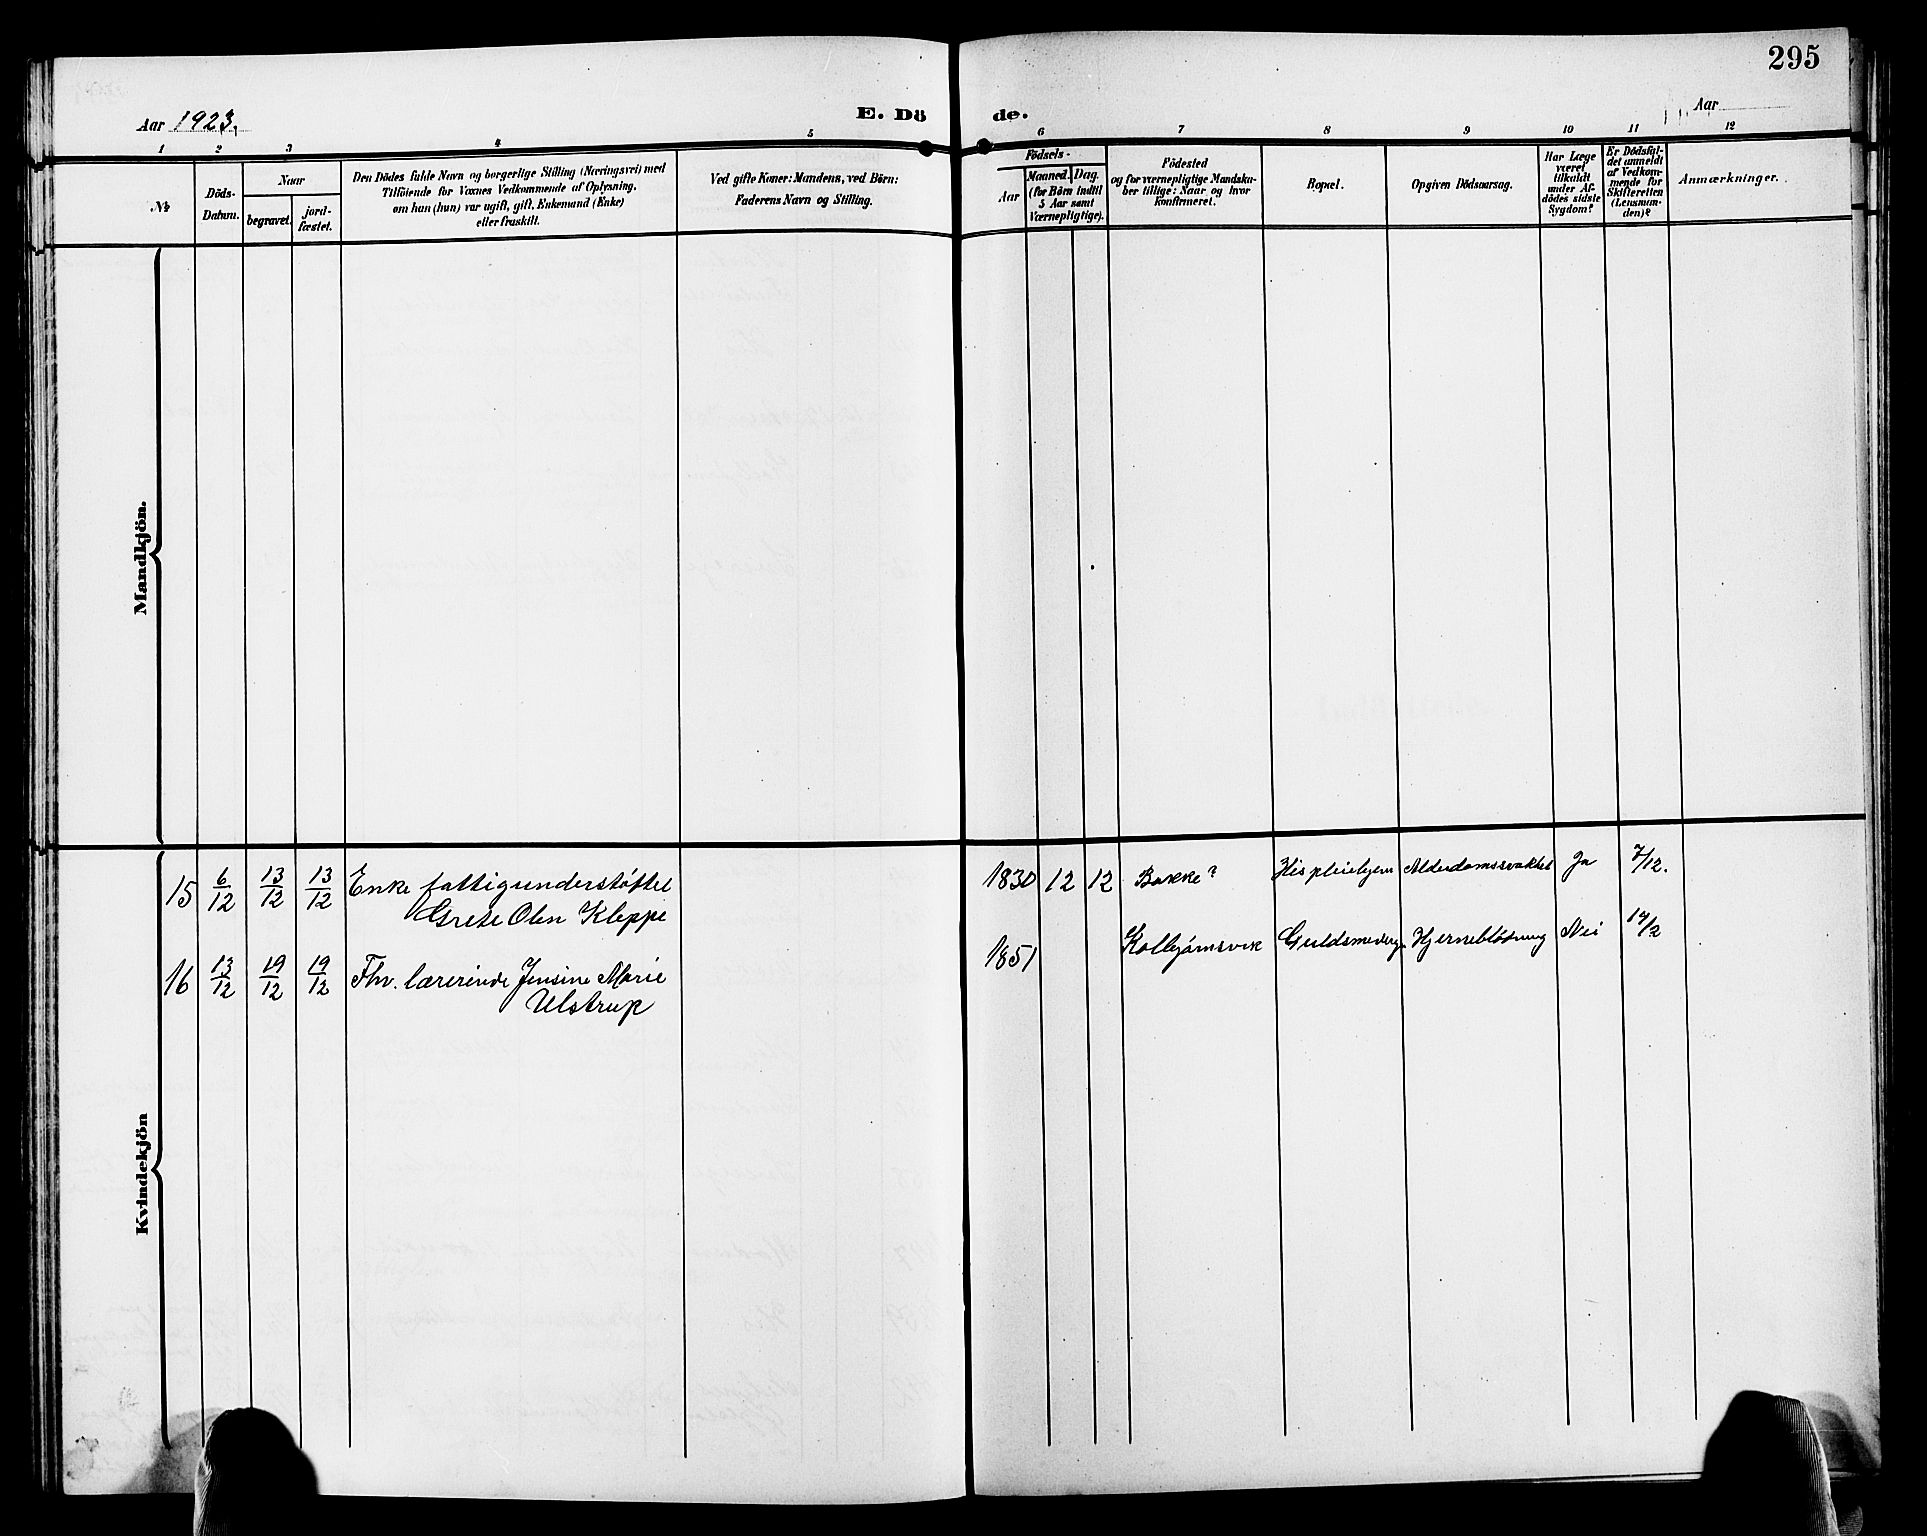 295
Aar 1923.
E. Dö de.
Aar
1 2 3 4 5 6 7 8 9 10 11 12
№
Döds-
Datum.
Naar
begravet.
jord-
fæstet.
Den Dödes fulde Navn og borgerlige Stilling (Næringsvei) med
Tilföiende for Voxnes Vedkommende af Oplysning,
om han (hun) var ugift, gift, Enkemand (Enke)
eller fraskilt.
Ved gifte Koner: Mandens, ved Börn:
Faderens Navn og Stilling.
Födsels-
Aar
Maaned. Dag.
(for Börn indtil
5 Aar samt
Værnepligtige).
Födested
og for værnepligtige Mandska-
ber tillige: Naar og hvor
konfirmeret.
Bopæl.
Opgiven Dödsaarsag.
Har Læge
været
tilkaldt
under Af-
dödes sidste
Sygdom?
Er Dödsfal-
det anmeldt
af Vedkom-
mende for
Skifteretten
(Lensman-
den)?
Anmærkninger.
Mandkjön.
Kvindekjön
15 6/12 13/12 13/12 Enke fattigunderstøttet 1830 12 12 Bakke? His pleiehjem Alderdomssvakhet Ja 7/12.
Grete Olen Kleppe
16 13/12 19/12 19/12 Fhv. lærerinde Jensine Marie 1851 Kolbjørnsvik Hjerneblødning Nei
Ulstrup